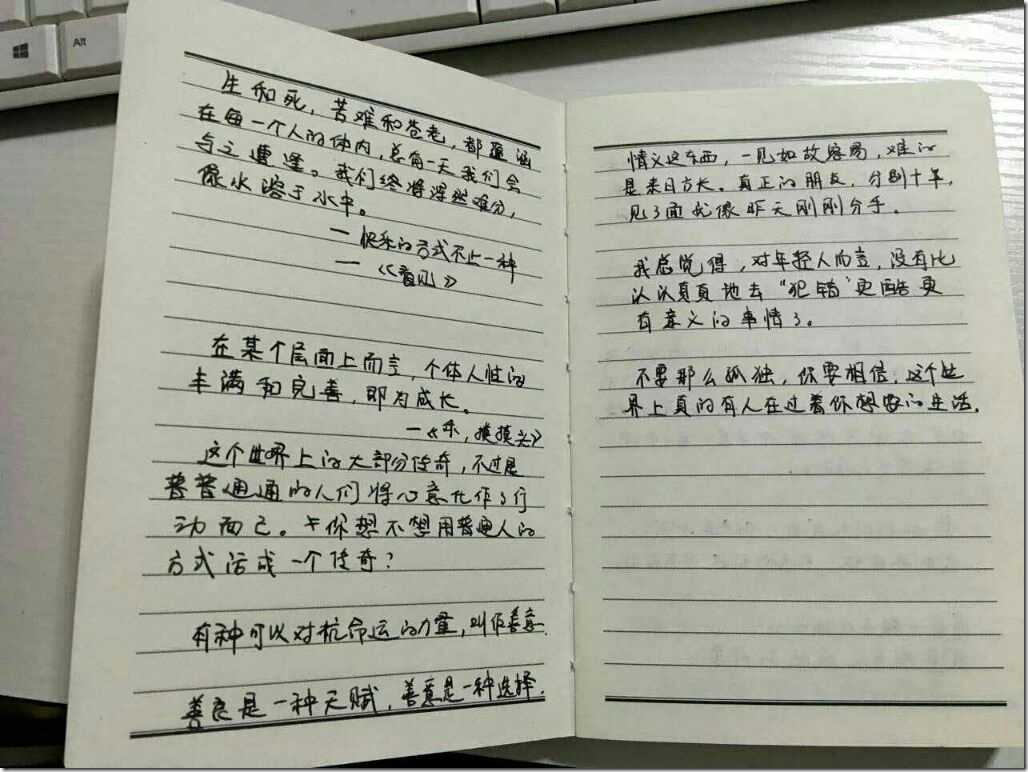 Alt
生和死,苦难和苍老,都蕴涵
在每一个人的体内,总有一天我们会
与之遭逢。我们终将浑然难分,
像水溶于水中。
— 快乐的方式不止一种
— 《首见》
在某个层面上而言,个体人性的
丰满和完善,即为成长。
—《乖,摸摸头》
这个世界上的大部分传奇,不过是
普普通通的人们将心意化作了行
动而已。 你想不想用普通人的
方式活成一个传奇?
有种可以对抗命运的力量,叫作善意.
善良是一种天赋,善意是一种选择.
情义这东西,一见如故容易,难的
是来日方长。真正的朋友,分别十年,
见了面也像昨天刚刚分手。
我总觉得,对年轻人而言,没有比
认认真真地去“犯错”更酷更
有意义的事情了。
不要那么孤独,你要相信,这个世
界上真的有人在过着你想要的生活.